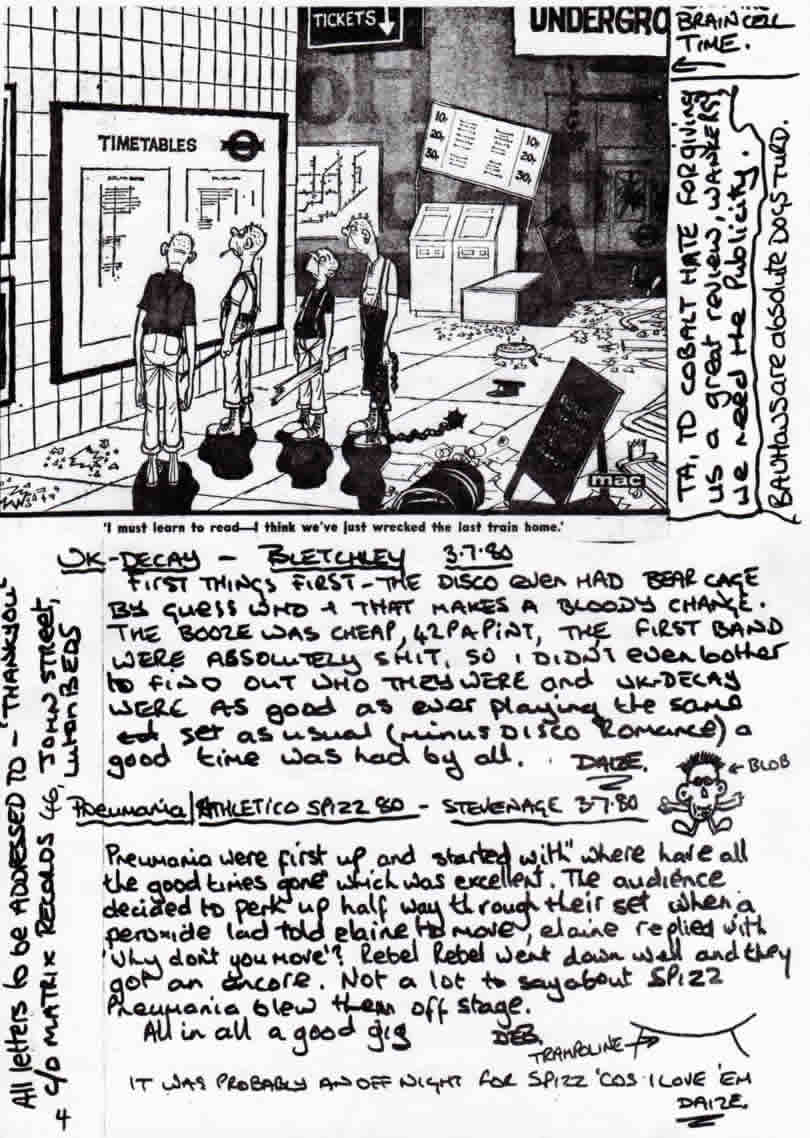 TICKETS
UNDERGRO
TIMETABLES
10p
20p
30p
10p
20p
30p
mac
'I must learn to read—I think we've just wrecked the last train home.'
BRAIN CELL
TIME.
TA, TO COBALT HATE FOR GIVING
US a great review, WANKERS,
we need the Publicity.
BAUHAUS are absolute DOGS TURD.
UK-DECAY - BLETCHLEY 3.7.80
FIRST THINGS FIRST - THE DISCO even HAD BEAR CAGE
BY GUESS WHO + THAT MAKES A BLOODY CHANGE.
THE BOOZE WAS CHEAP, 42P A PINT, THE FIRST BAND
WERE ABSOLUTELY SHIT, SO I DIDN'T even bother
to FIND OUT WHO THEY WERE and UK-DECAY
WERE AS good as ever playing the same
set as usual (minus DISCO Romance) a
good time was had by all. DAIZE.
BLOB
Pneumania/ATHLETICO SPIZZ 80 - STEVENAGE 3.7.80
Pneumania were first up and started with "where have all
the good times gone" which was excellent. The audience
decided to perk up half way through their set when a
peroxide lad told elaine to move, elaine replied with
'why don't you move'? Rebel Rebel went down well and they
got an encore. Not a lot to say about SPIZZ
Pneumania blew them off stage.
All in all a good gig DEB.
TRAMPOLINE
IT WAS PROBABLY AN OFF NIGHT FOR SPIZZ 'COS I LOVE 'EM
DAIZE.
All letters to be ADDRESSED TO - "THANKYOU"
C/O MATRIX RECORDS 46, JOHN STREET,
Luton BEDS
4